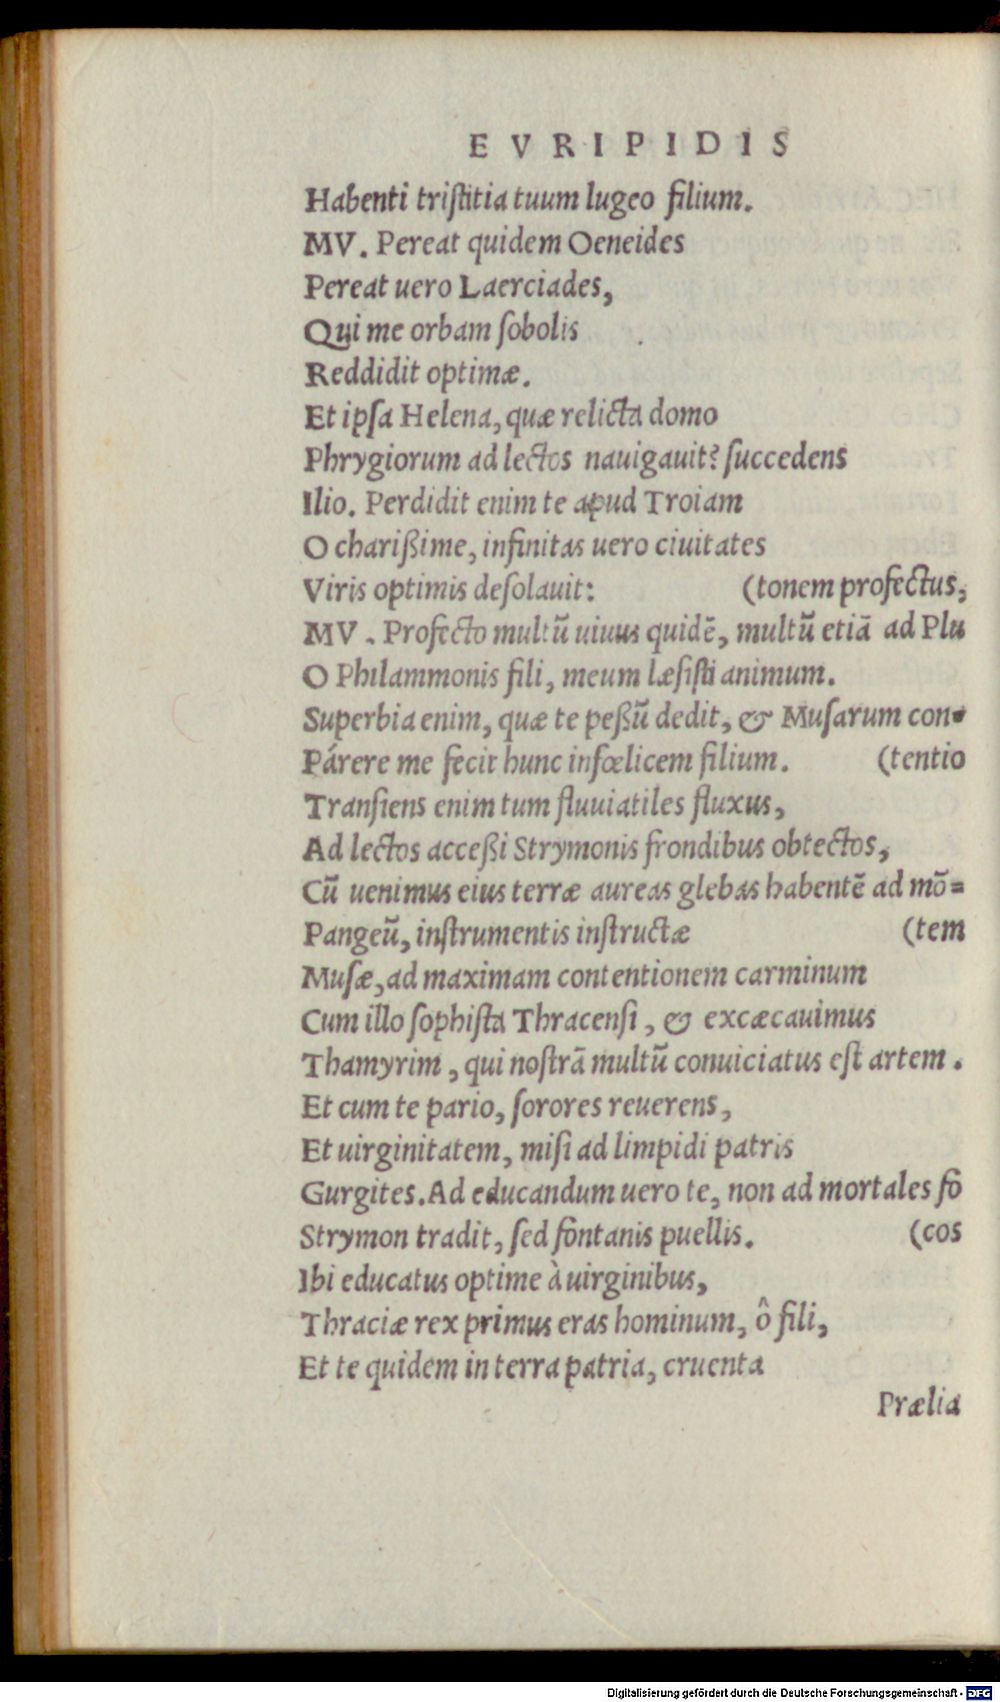 EVRIPIDIS
Habenti triſtitia tuum lugeo filium.
MV. Pereat quidem Oeneides
Pereat uero Laerciades,
Qui me orbam ſobolis
Reddidit optimæ.
Et ipſa Helena, quæ relicta domo
Phrygiorum ad lectos nauigauit? ſuccedens
Ilio. Perdidit enim te apud Troiam
O charißime, infinitas uero ciuitates
Viris optimis deſolauit: (tonem profectus,
MV. Profecto multū uiuus quidē, multū etiā ad Plu
O Philammonis fili, meum læſiſti animum.
Superbia enim, quæ te peßū dedit, & Muſarum con-
Párere me fecit hunc infœlicem filium. (tentio
Tranſiens enim tum fluuiatiles fluxus,
Ad lectos acceßi Strymonis frondibus obtectos,
Cū uenimus eius terræ aureas glebas habentē ad mō=
Pangeū, inſtrumentis inſtructæ (tem
Muſæ, ad maximam contentionem carminum
Cum illo ſophiſta Thracenſi, & excæcauimus
Thamyrim, qui noſtrā multū conuiciatus eſt artem.
Et cum te pario, ſorores reuerens,
Et uirginitatem, miſi ad limpidi patris
Gurgites. Ad educandum uero te, non ad mortales ſo
Strymon tradit, ſed fontanis puellis. (cos
Ibi educatus optime à uirginibus,
Thraciæ rex primus eras hominum, ô fili,
Et te quidem in terra patria, cruenta
Prælia
Digitalisierung gefördert durch die Deutsche Forschungsgemeinschaft - DFG